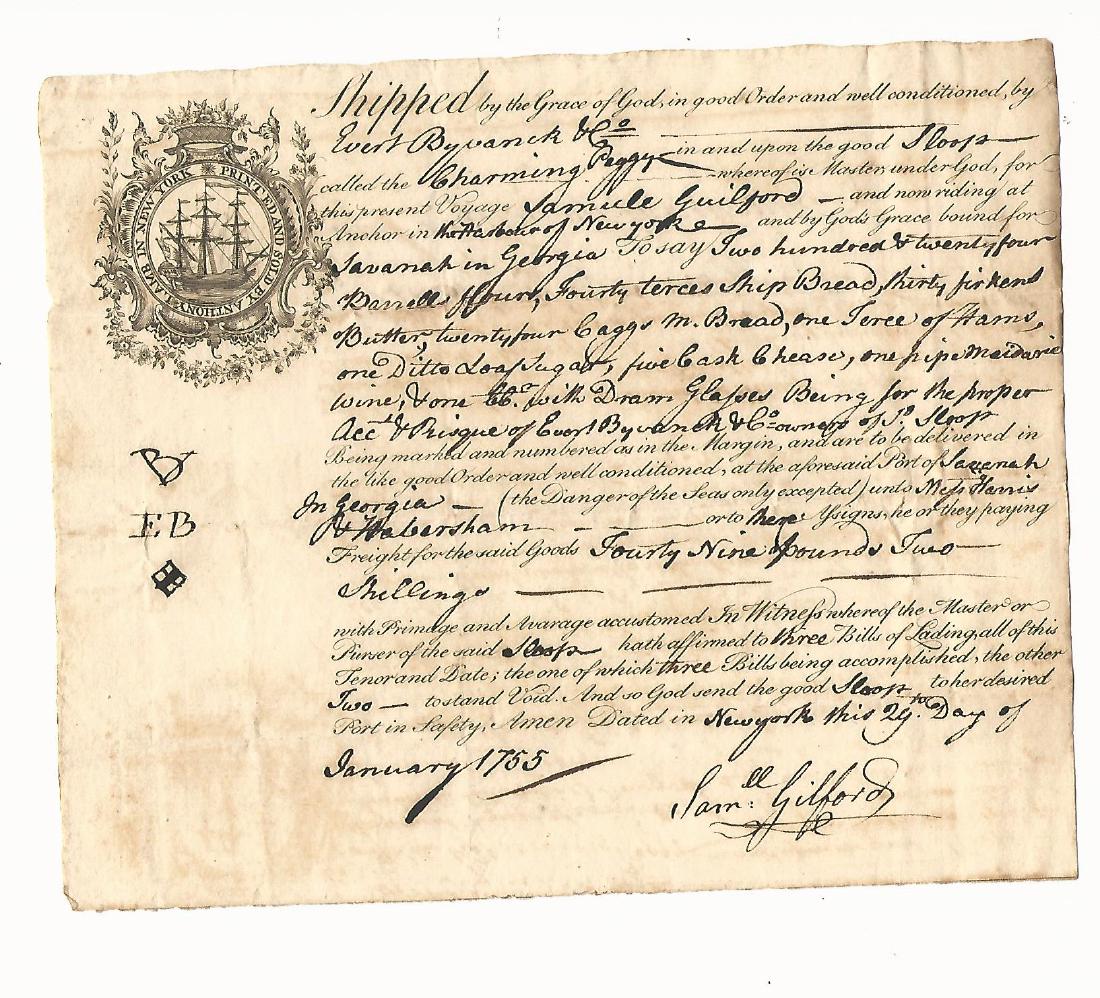 PRINTED AND SOLD BY ANTHONY LAMB IN NEW YORK
Shipped by the Grace of God, in good Order and well conditioned, by
Evert Byvanck & Co
in and upon the good Sloop
called the Charming Peggy whereof is Master under God, for
this present Voyage Samule Guilford — and now riding at
Anchor in the Harbour of New yorke and by Gods Grace bound for
Savanah in Georgia To say Two hundred & twenty four
Barrells flour, Fourty terces Ship Bread, thirty firkens
Butter, twenty four Caggs M. Bread, one Terce of Hams,
one Ditto Loaf Sugar, five Cask Chease, one pipe Maidarie
wine, & one with Dram Glasses Being for the proper
Acct & Risque of Evert Byvanck & Co owners of sd. Sloop
Being marked and numbered as in the Margin, and are to be delivered in
the like good Order and well conditioned, at the aforesaid Port of Savanah
In Georgia — (the Danger of the Seas only excepted) unto Mess Harris
& Habersham — or to there Assigns, he or they paying
Freight for the said Goods Fourty Nine pounds Two
Shillings
with Primage and Avarage accustomed In Witness whereof the Master or
Purser of the said Sloop hath affirmed to three Bills of Lading, all of this
Tenor and Date; the one of which three Bills being accomplished, the other
Two — to stand Void. And so God send the good Sloop to her desired
Port in Safety, Amen Dated in New york this 29th. Day of
January 1755
Samll: Gilford
B
EB